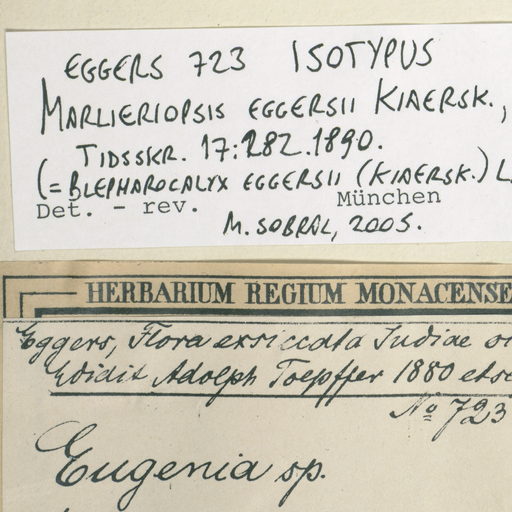 EGGERS 723 ISOTYPUS
MARLIERIOPSIS EGGERSII KIAERSK.,
TIDSSKR. 17:282.1890.
(= BLEPHAROCALYX EGGERSII (KIAERSK.) L
Det. - rev. München
M. SOBRAL, 2005.
HERBARIUM REGIUM MONACENSE
Eggers, Flora exsiccata Indiae
Edidit Adolph Toepffer 1880 etse
No 723
Eugenia sp.